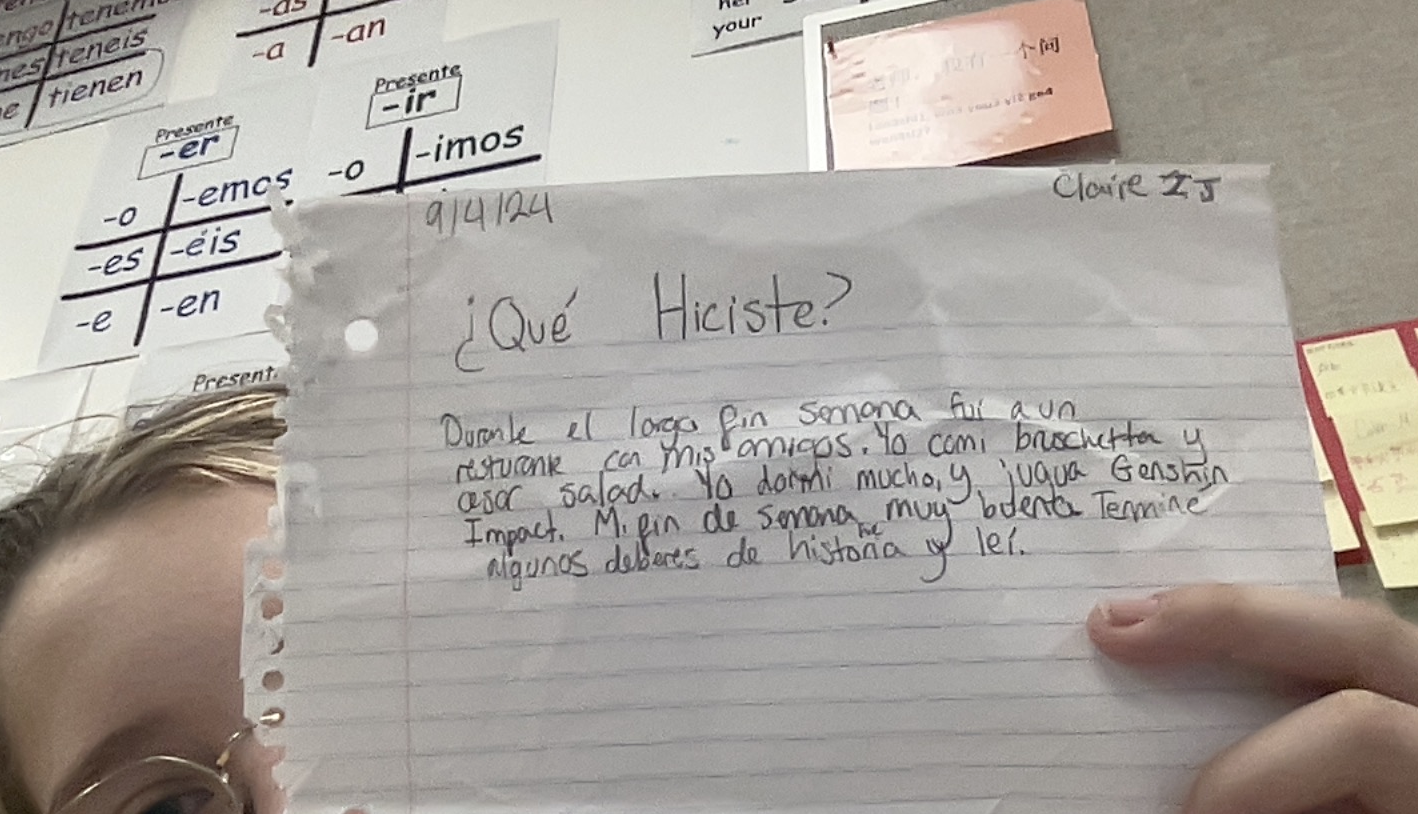 engo tenemo
nes teneis
e tienen
-as
-a -an
Presente
-er
-o -emos
-es -éis
-e -en
Presente
-ir
-o -imos
Present
your
一个问
9/4/24
Claire IJ
¿Qué Hiciste?
Durante el largo fin semana fui a un
resturante con mis amigos. Yo comi bruschetta y
cesar salad. Yo dormi mucho, y jugua Genshin
Impact. Mi fin de semana he muy buena Termine
algunos deberes de historia y leí.